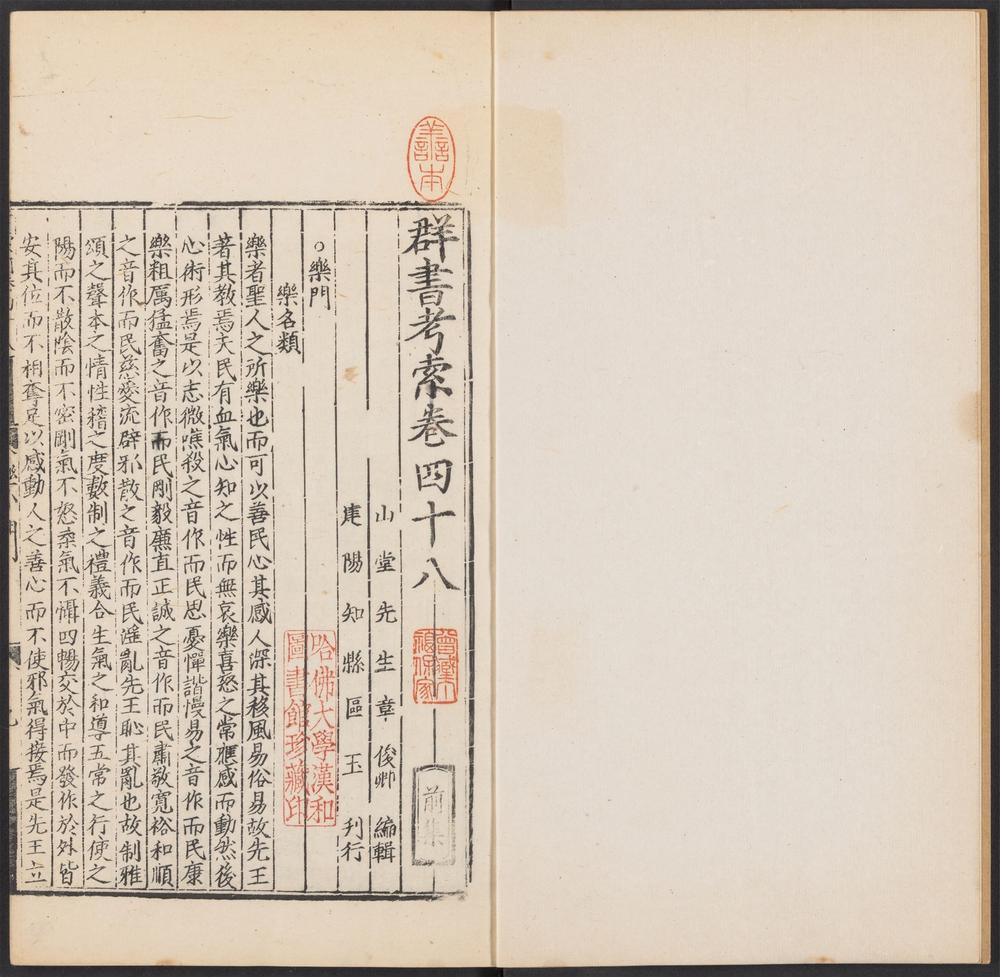 善本
群書考索卷四十八
前集
山堂先生章俊卿編輯
知縣區玉刊行
哈佛大學漢和
圖書館珍藏印
○樂門
樂名類
樂者聖人之所樂也而可以善民心其感人深其移風易俗易故先王
著其教焉夫民有血氣心知之性而無哀樂喜怒之常應感而動然後
心術形焉是以志微噍殺之音作而民思憂嘽諧慢易之音作而民康
樂粗厲猛奮之音作而民剛毅廉直正誠之音作而民肅敬寬裕和順
之音作而民慈愛流辟邪散之音作而民淫亂先王恥其亂也故制雅
頌之聲本之情性稽之度數制之禮義合生氣之和導五常之行使之
陽而不散陰而不密剛氣不怒柔氣不懾四暢交於中而發作於外皆
安其位而不相奪足以感動人之善心而不使邪氣得接焉是先王立